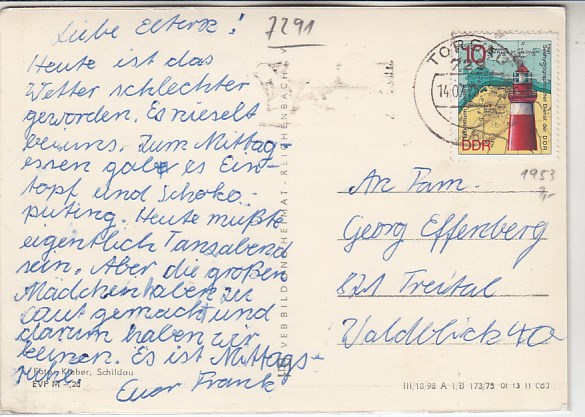 7291
Liebe Eltern!
Heute ist das
Wetter schlechter
geworden. Es nieselt
bei uns. Zum Mittag-
essen gab es Ein-
topf und Schoko-
puting. Heute müßte
eigentlich Tanzabend
sein. Aber die großen
Mädchen haben zu
laut gemacht und
darum haben wir
keinen. Es ist Mittags-
ruhe. Euer Frank
Foto: Kleber, Schildau
EVP M -,20
VEB BILD UND HEIMAT REICHENBACH i. V.
TORGAU
14.07.
10
DDR
1953
7,-
An Fam.
Georg Effenberg
821 Freital
Waldblick 40a
III/18/98 A 1/B 173/75 01 13 11 063